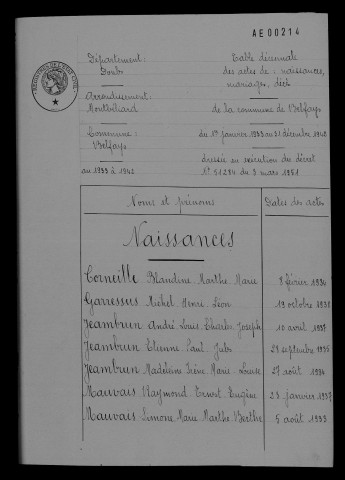 AE00214
Département:
Doubs
Arrondissement:
Montbéliard
Commune:
Belfays
au 1933 à 1942
Table décennale
des actes de: naissances,
mariages, décès
de la commune de Belfays
du 1er janvier 1933 au 31 décembre 1942
dressée en exécution du décret
N° 51284 du 3 mars 1951
Noms et prénoms
Dates des actes
Naissances
Corneille Blandine Marthe Marie 8 février 1934
Garressus Michel Henri Léon 19 octobre 1938
Jeambrun André Louis Charles Joseph 10 avril 1937
Jeambrun Etienne Paul Jules 29 septembre 1935
Jeambrun Madeleine Irène Marie-Louise 27 août 1934
Mauvais Raymond Ernest Eugène 23 janvier 1937
Mauvais Simone Marie Marthe Berthe 5 août 1933